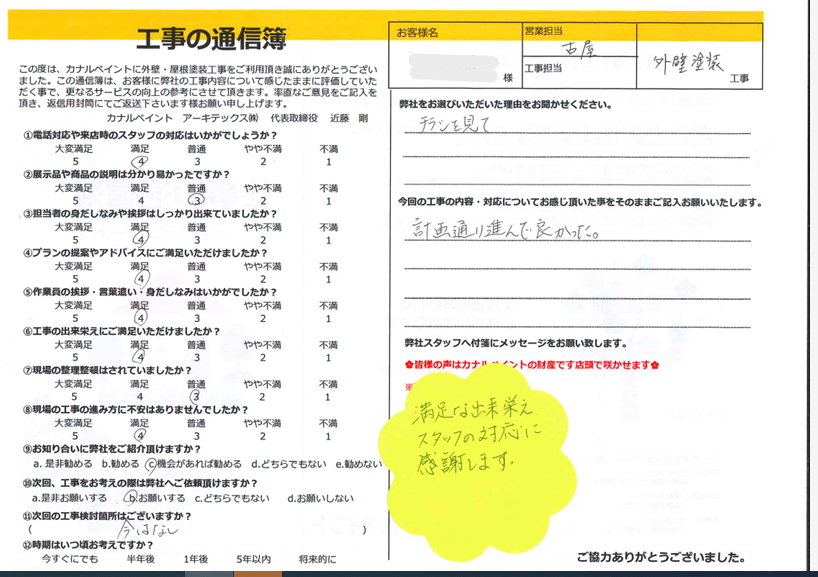 工事の通信簿
この度は、カナルペイントに外壁・屋根塗装工事をご利用頂き誠にありがとうござい
ました。この通信簿は、お客様に弊社の工事内容について感じたままに評価していた
だく事で、更なるサービスの向上の参考にさせて頂きます。率直なご意見をご記入を
頂き、返信用封筒にてご返送下さいます様お願い申し上げます。
カナルペイント　アーキテックス㈱　代表取締役　近藤　剛
お客様名
様
営業担当
古屋
工事担当
外壁塗装
工事
①電話対応や来店時のスタッフの対応はいかがでしょうか？
大変満足 満足 普通 やや不満 不満
5 4 3 2 1
②展示品や商品の説明は分かり易かったですか？
大変満足 満足 普通 やや不満 不満
5 4 3 2 1
③担当者の身だしなみや挨拶はしっかり出来ていましたか？
大変満足 満足 普通 やや不満 不満
5 4 3 2 1
④プランの提案やアドバイスにご満足いただけましたか？
大変満足 満足 普通 やや不満 不満
5 4 3 2 1
⑤作業員の挨拶・言葉遣い・身だしなみはいかがでしたか？
大変満足 満足 普通 やや不満 不満
5 4 3 2 1
⑥工事の出来栄えにご満足いただけましたか？
大変満足 満足 普通 やや不満 不満
5 4 3 2 1
⑦現場の整理整頓はされていましたか？
大変満足 満足 普通 やや不満 不満
5 4 3 2 1
⑧現場の工事の進み方に不安はありませんでしたか？
大変満足 満足 普通 やや不満 不満
5 4 3 2 1
⑨お知り合いに弊社をご紹介頂けますか？
a. 是非勧める b.勧める c.機会があれば勧める d.どちらでもない e.勧めない
⑩次回、工事をお考えの際は弊社へご依頼頂けますか？
a.是非お願いする b.お願いする c.どちらでもない d.お願いしない
⑪次回の工事検討箇所はございますか？
( 今はなし )
⑫時期はいつ頃お考えですか？
今すぐにでも 半年後 1年後 5年以内 将来的に
弊社をお選びいただいた理由をお聞かせください。
チラシを見て
今回の工事の内容・対応についてお感じ頂いた事をそのままご記入お願いいたします。
計画通り進んで良かった。
弊社スタッフへ付箋にメッセージをお願い致します。
✿皆様の声はカナルペイントの財産です店頭で咲かせます✿
※
満足な出来栄え
スタッフの対応に
感謝します。
ご協力ありがとうございました。